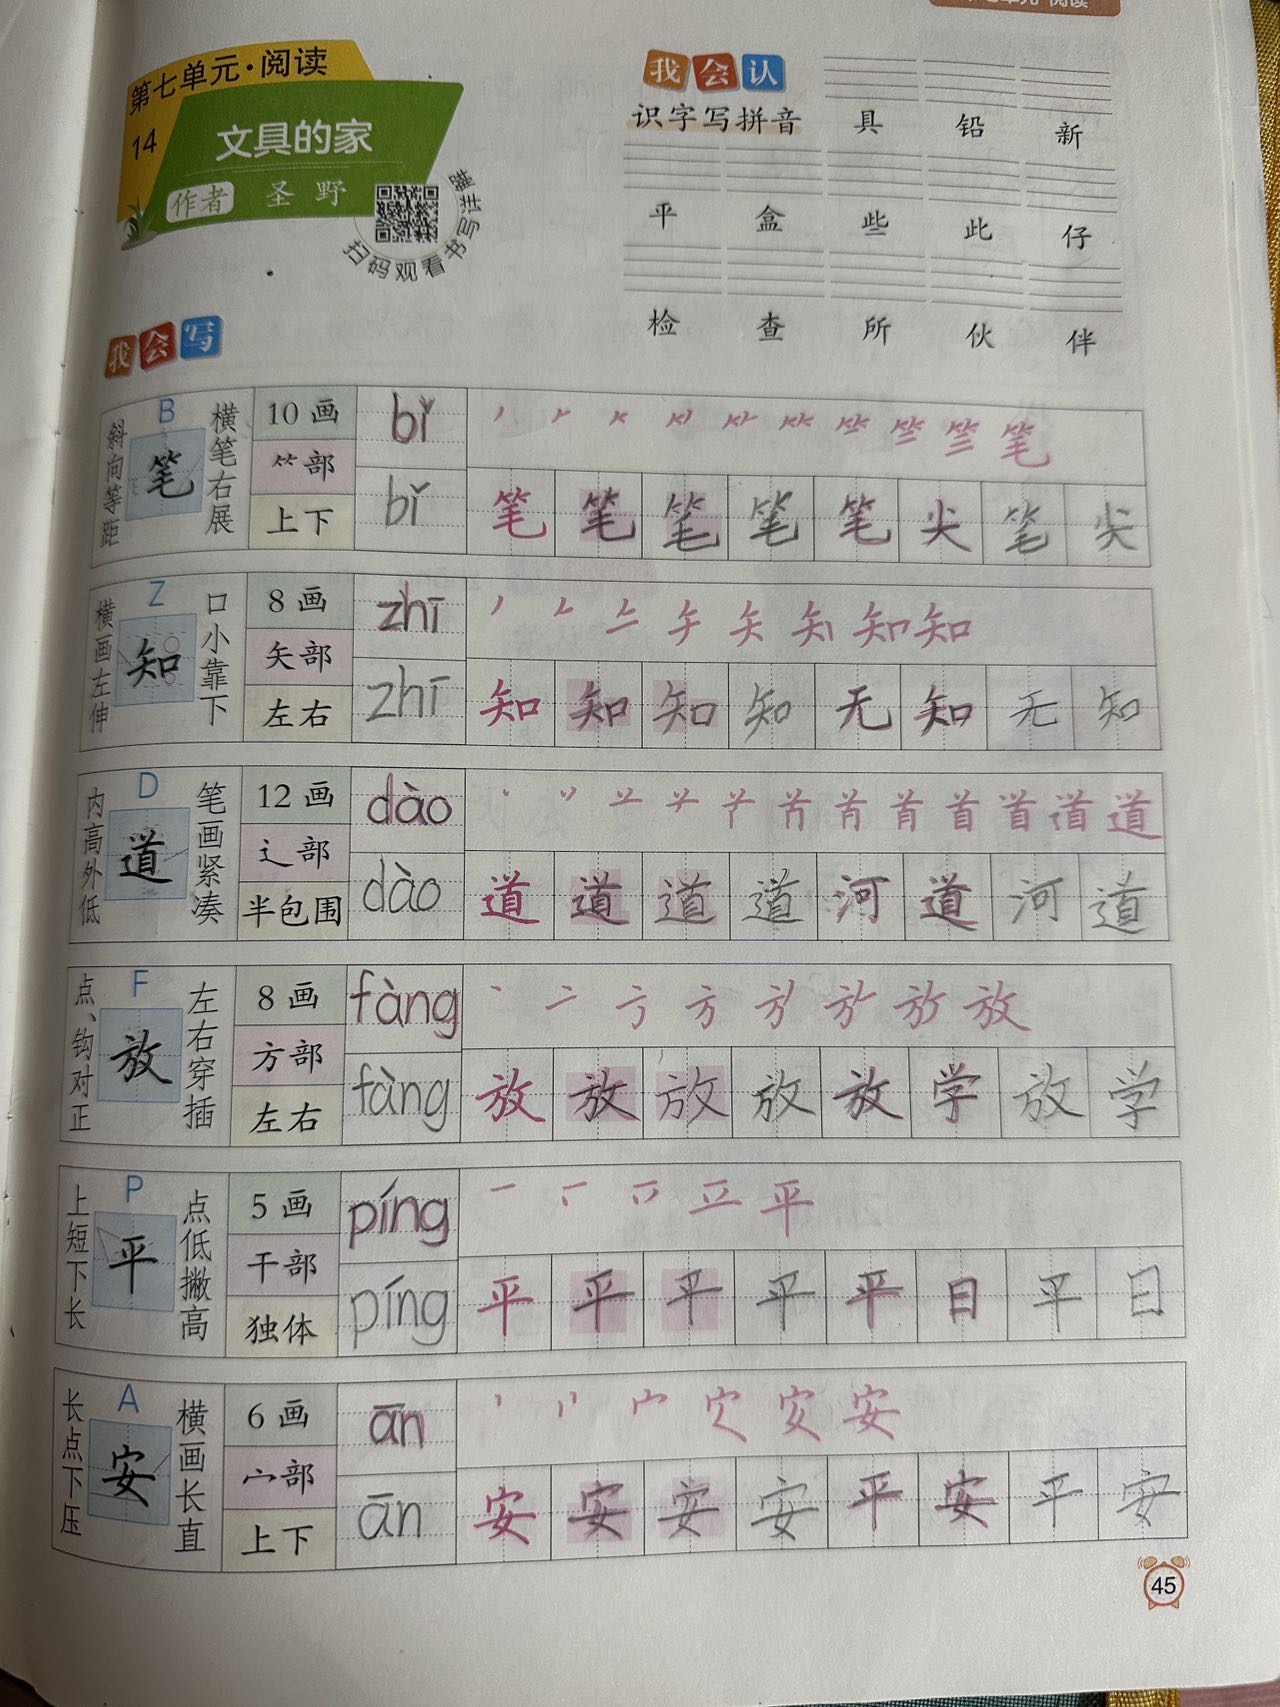 第七单元·阅读
14
文具的家
作者 圣野
扫码观看书写详解
我会认
识字写拼音 具 铅 新
平 盒 些 此 仔
检 查 所 伙 伴
我会写
斜向等距 B 笔 横笔右展 10画 bǐ
⺮部 bǐ 笔 笔 笔 笔 笔 尖 笔 尖
上下
横画左伸 Z 知 口小靠下 8画 zhī
矢部 zhī 知 知 知 知 无 知 无 知
左右
内高外低 D 道 笔画紧凑 12画 dào
辶部 dào 道 道 道 道 河 道 河 道
半包围
点、钩对正 F 放 左右穿插 8画 fàng
方部 fàng 放 放 放 放 放 学 放 学
左右
上短下长 P 平 点低撇高 5画 píng
干部 píng 平 平 平 平 平 日 平 日
独体
长点下压 A 安 横画长直 6画 ān
宀部 ān 安 安 安 安 平 安 平 安
上下
45